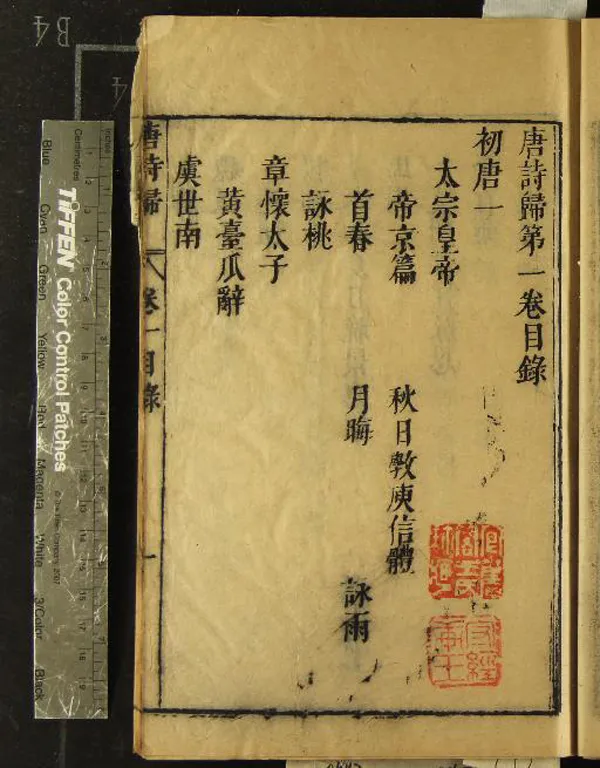 唐詩歸第一卷目錄
初唐一
太宗皇帝
帝京篇 秋日斆庾信體
首春 月晦 詠雨
詠桃
章懷太子
黃臺瓜辭
虞世南
唐詩歸 卷一目錄 一
B4
4
Inches
Centimetres
TIFFEN Color Control Patches
© The Tiffen Company, 2007
Blue
Cyan
Green
Yellow
Red
Magenta
White
3/Color
Black